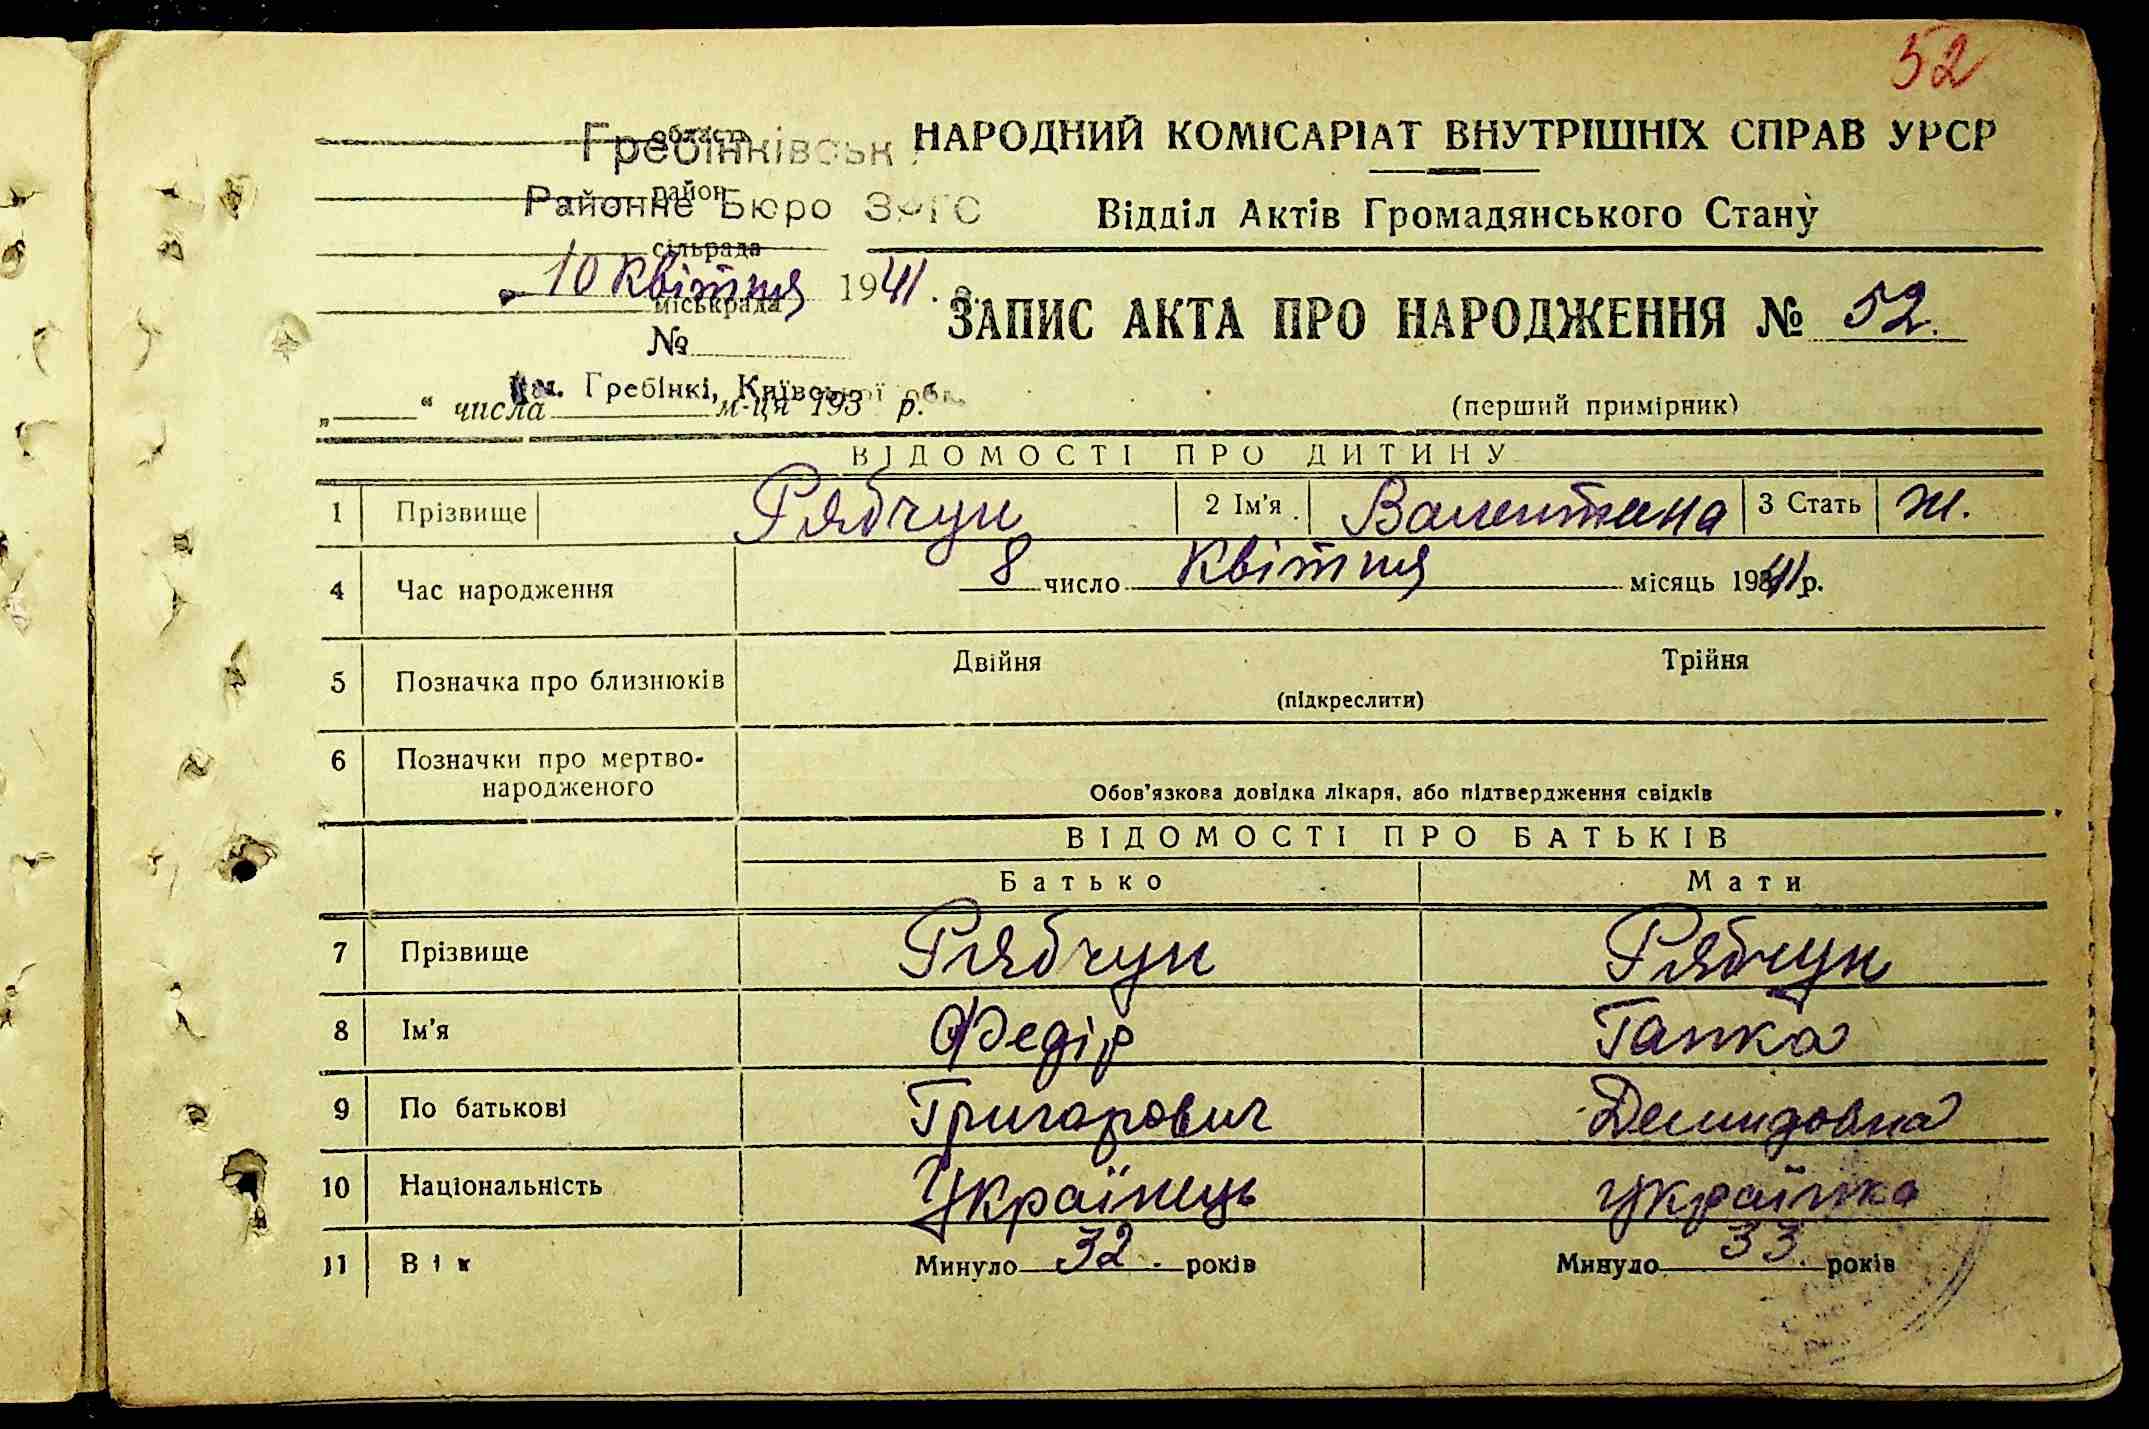 52
область
Гребінківськ
НАРОДНИЙ КОМІСАРІАТ ВНУТРІШНІХ СПРАВ УРСР
район
Районне Бюро ЗАГС
Відділ Актів Громадянського Стану
сільрада
10 квітня 1941 р.
міськрада
ЗАПИС АКТА ПРО НАРОДЖЕННЯ № 52.
№
м. Гребінкі, Київської обл.
„ “ числа м-ця 193 р.
(перший примірник)
ВІДОМОСТІ ПРО ДИТИНУ
1 Прізвище Рябчун 2 Ім'я Валентина 3 Стать ж.
4 Час народження 8 число квітня місяць 1941 р.
5 Позначка про близнюків Двійня Трійня
(підкреслити)
6 Позначки про мертво-
народженого
Обов'язкова довідка лікаря, або підтвердження свідків
ВІДОМОСТІ ПРО БАТЬКІВ
Батько Мати
7 Прізвище Рябчун Рябчун
8 Ім'я Федір Гапка
9 По батькові Григорович Демидовна
10 Національність Українець українка
11 Вік Минуло 32. років Минуло 33. років